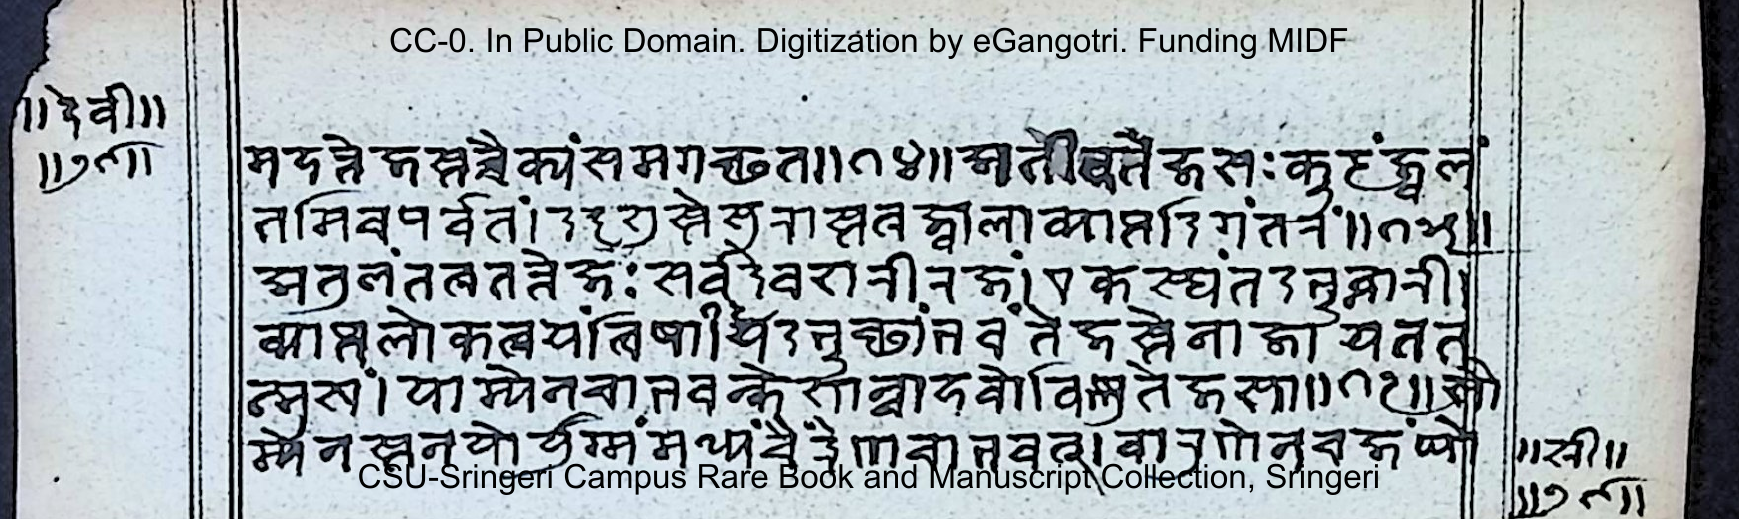 CC-0. In Public Domain. Digitization by eGangotri. Funding MIDF
॥देवी॥
महत्तेजस्तच्चैक्यं समगच्छत॥११॥अतीव तेजसः कूटं ज्वलं
तमिव पर्वतं। ददृशुस्ते सुरास्तत्र ज्वालाव्याप्तदिगंतरं॥१२॥
अतुलं तत्र तत्तेजः सर्वदेवशरीरजं। एकस्थं तदभून्नारी
व्याप्तलोकत्रयं त्विषा। यदभूच्छांभवं तेजस्तेनाजायत त
न्मुखं। याम्येन चाभवन्केशा बाहवो विष्णुतेजसा॥१४॥सौ
म्येन स्तनयोर्युग्मं मध्यं चैंद्रेण चाभवत्। वारुणेन च जंघो
॥स्री॥
CSU-Sringeri Campus Rare Book and Manuscript Collection, Sringeri